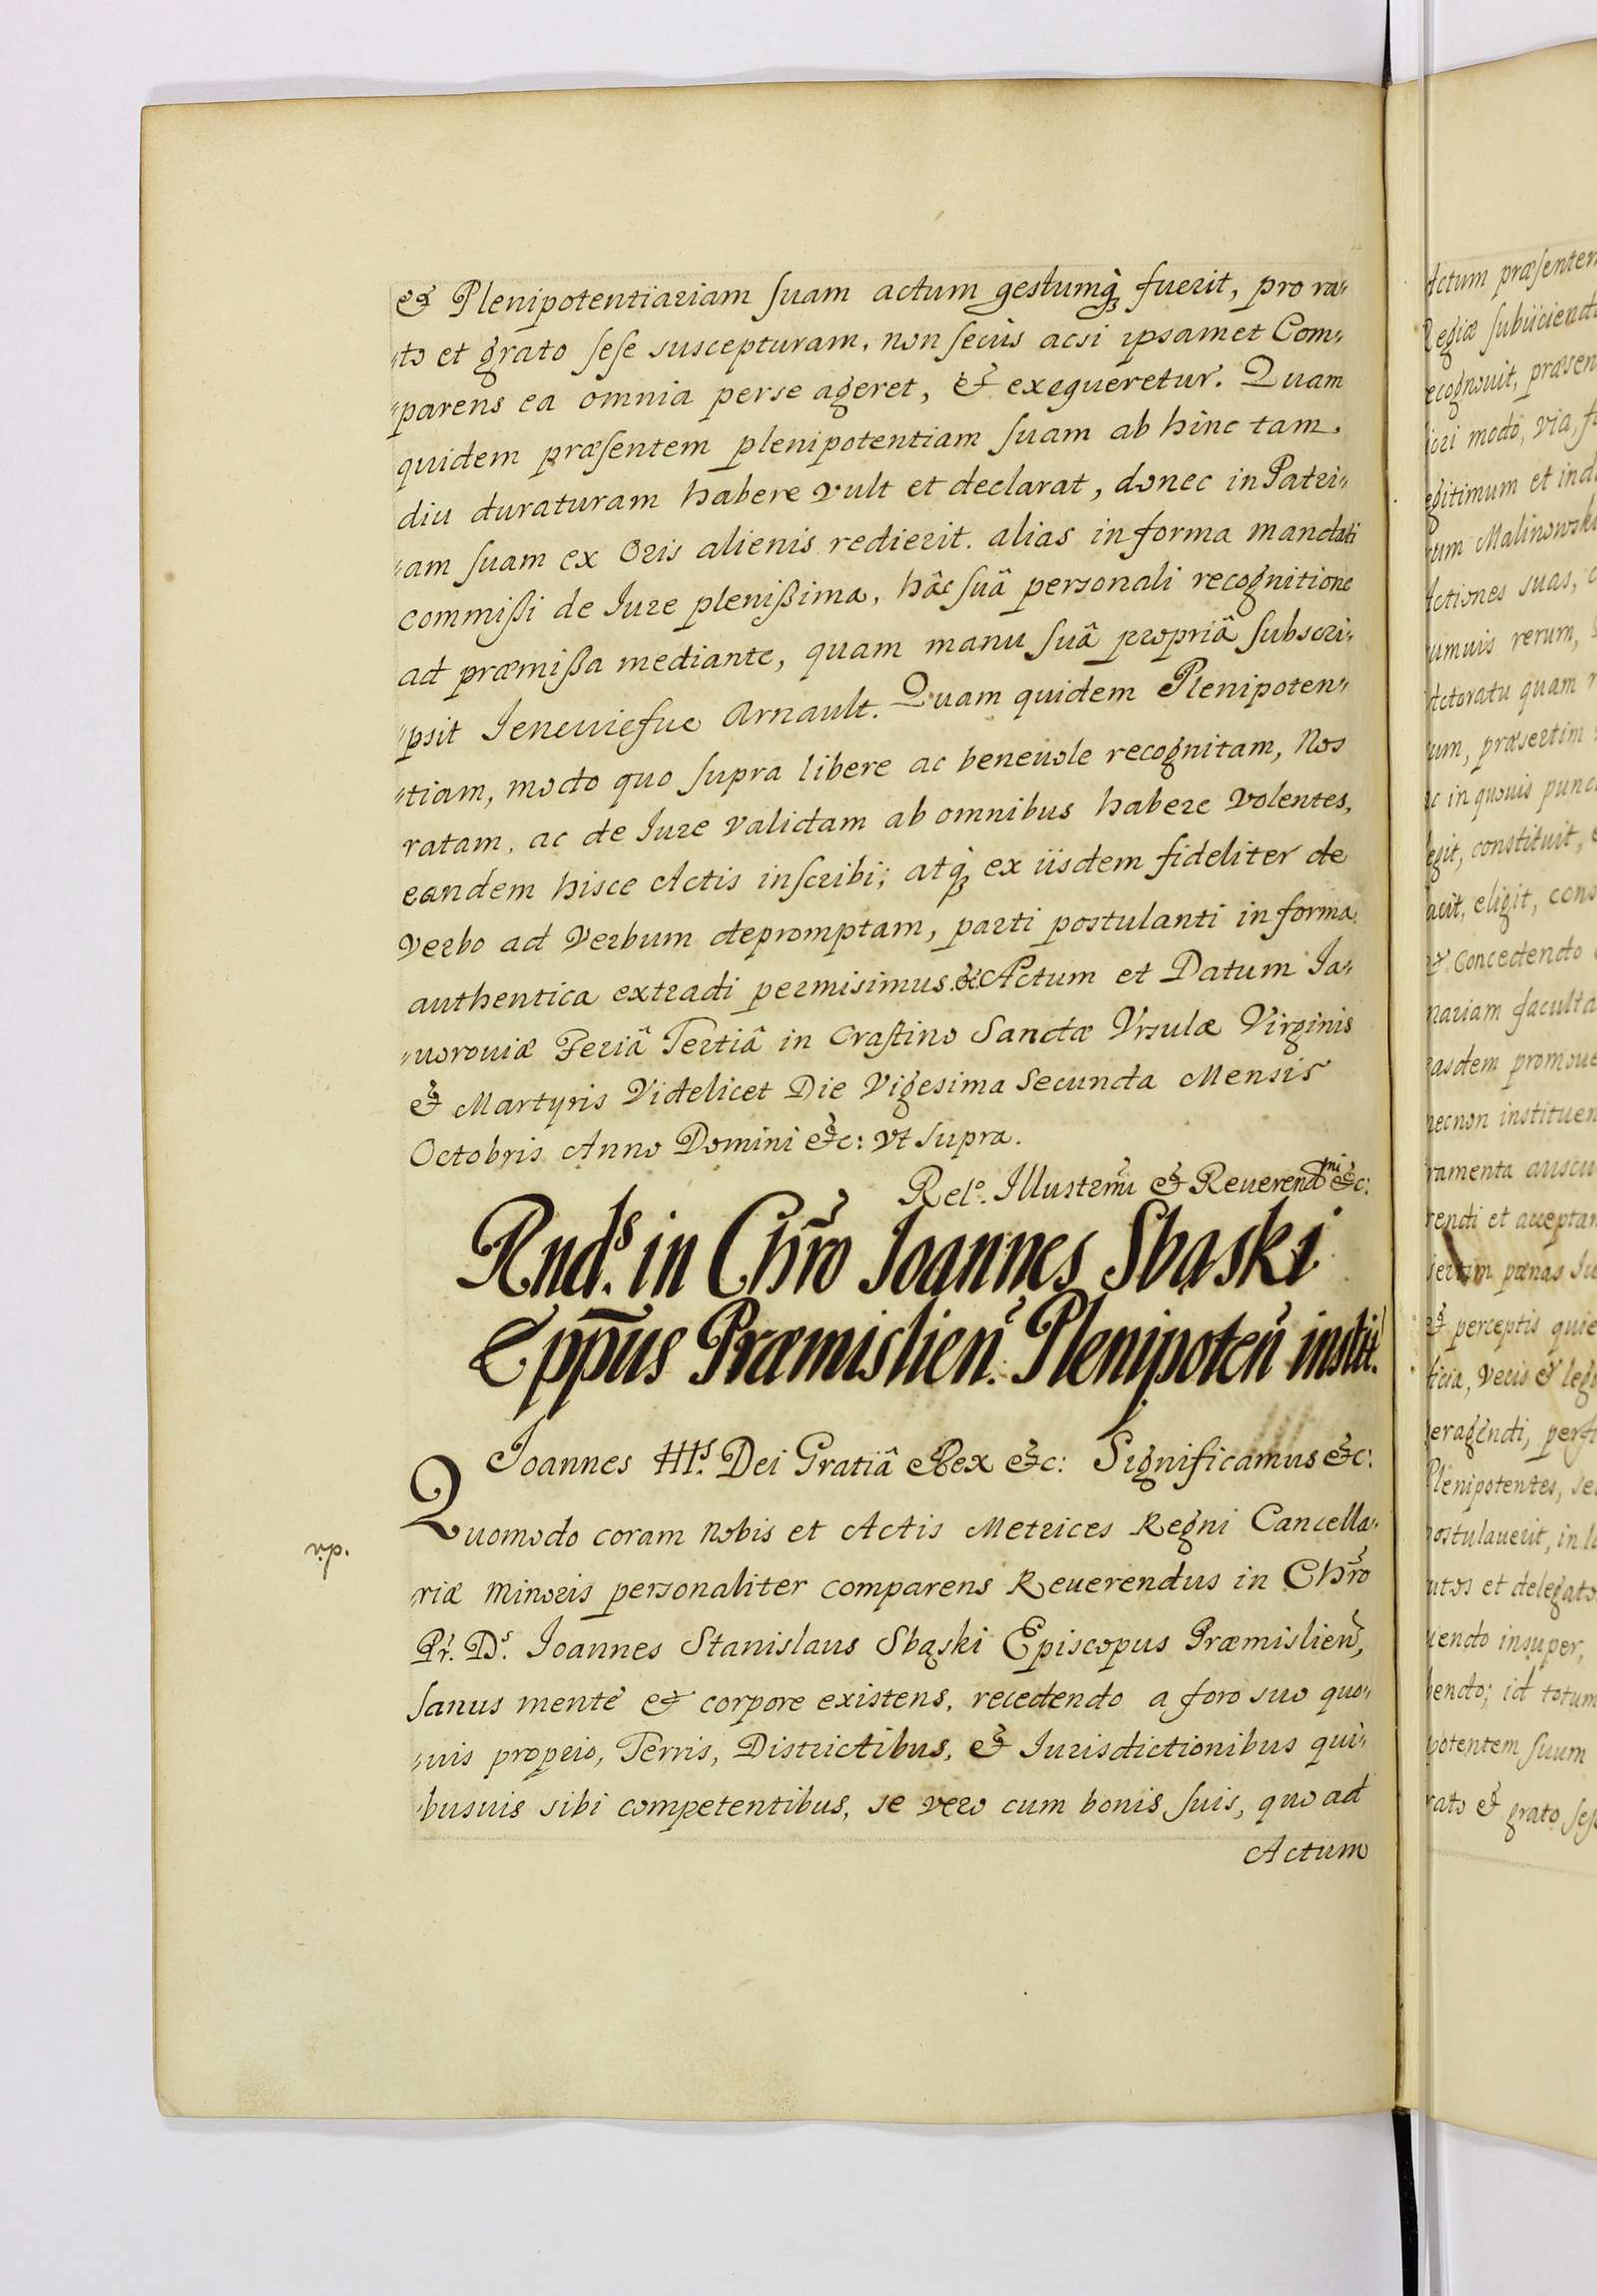 et Plenipotentiariam suam actum gestumq́; fuerit, pro ra„
„to et grato sese suscepturam, non secùs acsi ipsamet Com„
„parens ea omnia per se ageret, & exequeretur. Quam
quidem præsentem plenipotentiam suam ab hinc tam.
diu duraturam habere vult et declarat, donec in Patri„
„am suam ex Oris alienis redierit. alias in forma mandati
commissi de Iure plenissima, hâc suâ personali recognitione
ad præmissa mediante, quam manu suâ propriâ subscri„
„psit Ieneuiefue Arnault. Quam quidem Plenipoten„
„tiam, modo quo supra libere ac beneuole recognitam, Nos
ratam, ac de Iure validam ab omnibus habere volentes,
eandem hisce Actis inscribi; atq́; ex iisdem fideliter de
verbo ad verbum depromptam, parti postulanti in forma
authentica extradi permisimus. &c Actum et Datum Ia„
„uorouiæ Feriâ Tertiâ in Crastino Sanctæ Vrsulæ Virginis
& Martyris Videlicet Die Vigesima Secunda Mensis
Octobris Anno Domini &c: vt supra.
Relº. Illustrm̃i & Reverendmi &c:
Rnd.s in Chr̃o Joannes Sbąski
Epp̃us Præmislien̉. Plenipoten̉ instit.
Joannes IIIs. Dei Gratiâ Rex &c: Significamus &c:
Quomodo coram Nobis et Actis Metrices Regni Cancella„
„riæ Minoris personaliter comparens Reuerendus in Chr̃o
Pr. Ds. Joannes Stanislaus Sbąski Episcopus Præmislien̉,
sanus mente & corpore existens, recedendo a foro suo quo„
„uis proprio, Terris, Districtibus, & Iurisdictionibus qui„
„busuis sibi competentibus, se vero cum bonis suis, quo ad
Actum
Actum præsentem
Regiæ subiiciendo
recognouit, præsen
modo, via, f
egitimum et ind
Malinowski
Actiones suas,
rerum,
quam
præsertim
ac in quouis punc
legit, constituit,
eligit, cons
& Concedendo
faculta
easdem promoue
necnon instituen
auscu
et acceptan
pænas Iu
& perceptis quie
& legi
peragendi, perfi
Plenipotentes, se
postulauerit, in
et delegato
insuper,
id totum
suum
rato & grato sese